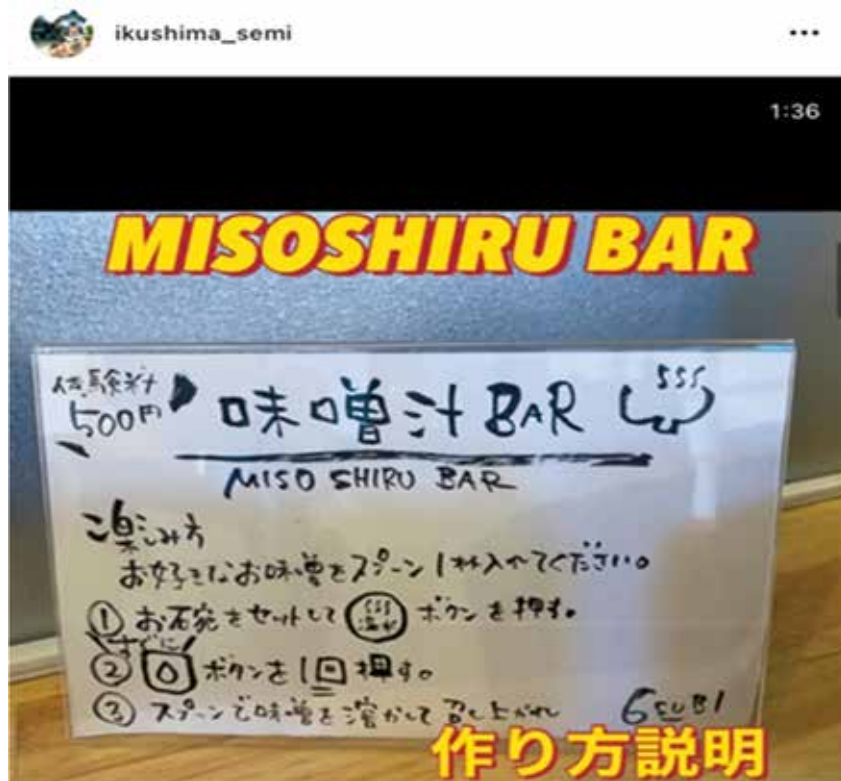 ikushima_semi
1:36
MISOSHIRU BAR
体験料
500円
味噌汁BAR
MISO SHIRU BAR
ご楽しみ方
お好きなお味噌をスプーン1杯入れてください。
① お碗をセットして ボタンを押す。
すぐに
② ボタンを1回押す。
③ スプーンで味噌を溶かして召し上がれ
作り方説明